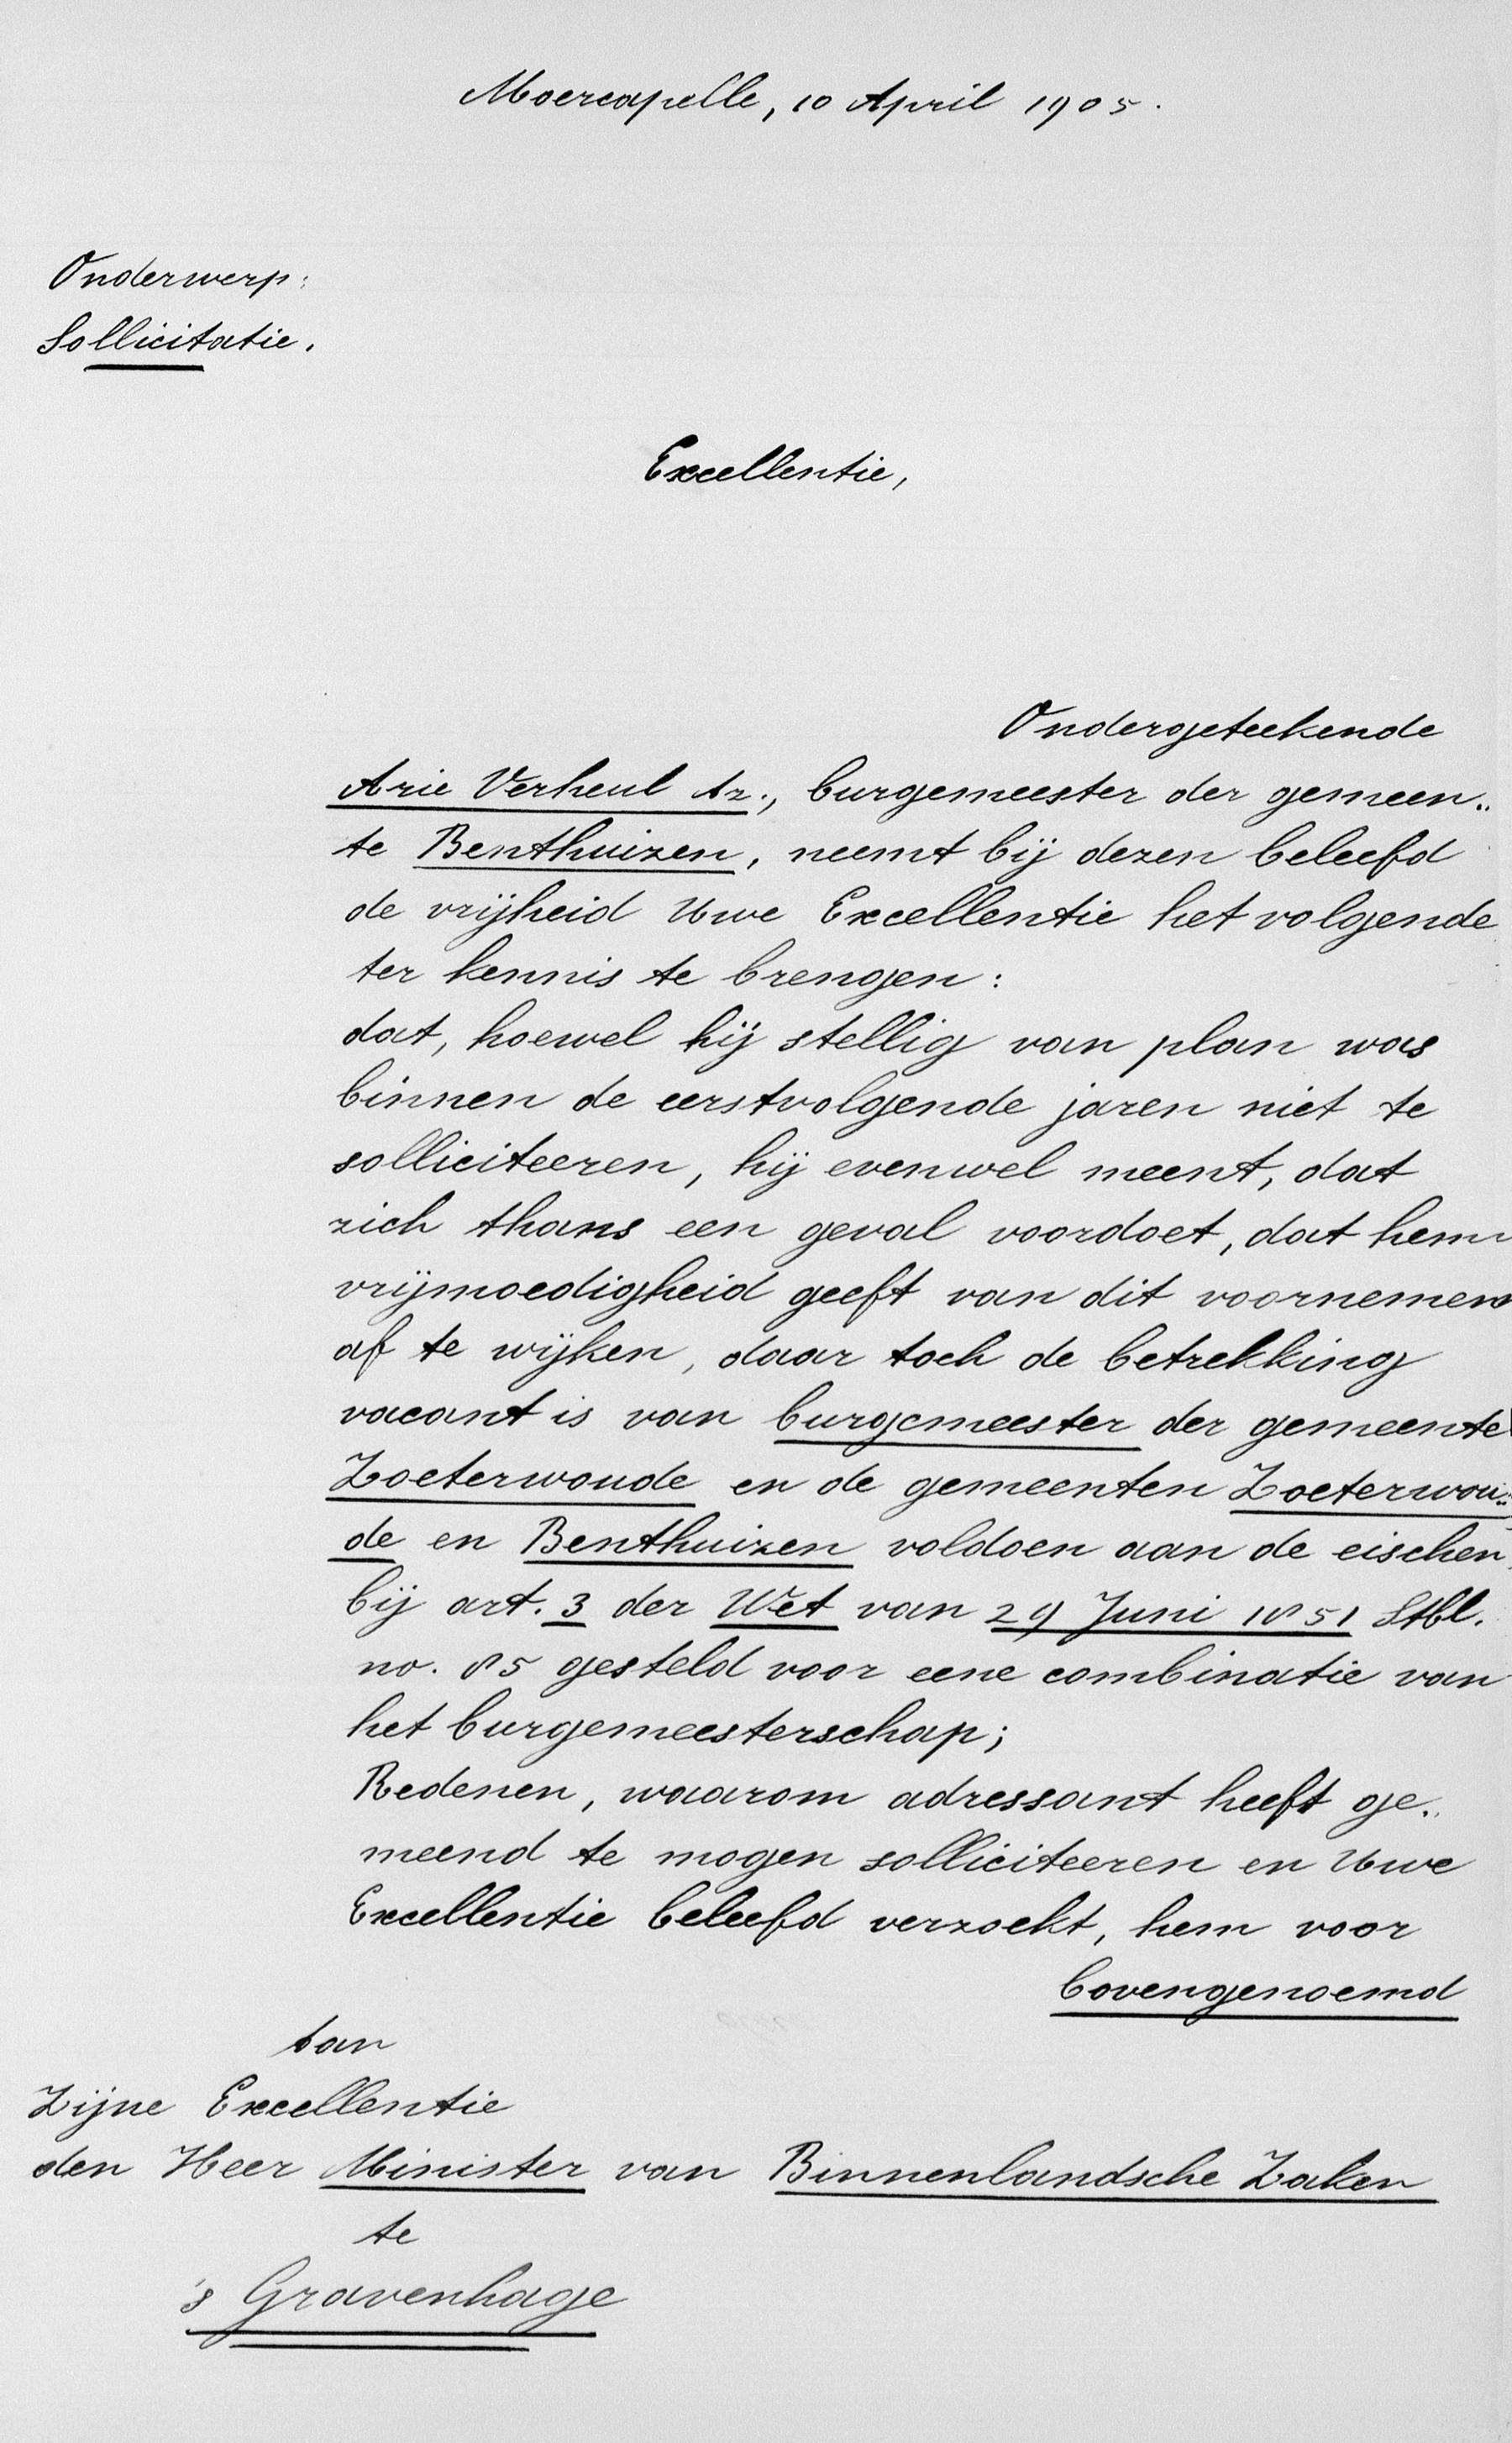 Moercapelle, 10 April 1905.
Onderwerp:
Sollicitatie.
Excellentie,
Ondergeteekende
Arie Verheul Az., burgemeester der gemeen„
te Benthuizen, neemt bij dezen beleefd
de vrijheid Uwe Excellentie het volgende
ter kennis te brengen:
dat, hoewel hij stellig van plan was
binnen de eerstvolgende jaren niet te
solliciteeren, hij evenwel meent, dat
zich thans een geval voordoet, dat hem
vrijmoedigheid geeft van dit voornemen
af te wijken, daar toch de betrekking
vacant is van burgemeester der gemeente
Zoeterwoude en de gemeenten Zoeterwou„
de en Benthuizen voldoen aan de eischen,
bij art. 3 der Wet van 29 Juni 1851 Stbl.
no. 85 gesteld voor eene combinatie van
het burgemeesterschap;
Redenen, waarom adressant heeft ge„
meend te mogen solliciteeren en Uwe
Excellentie beleefd verzoekt, hem voor
bovengenoemd
Aan
Zijne Excellentie
den Heer Minister van Binnenlandsche Zaken
te
's Gravenhage